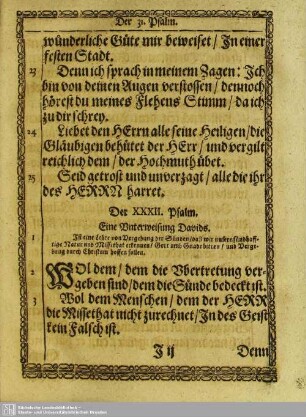 Der 31. Psalm.
wünderliche Güte mir beweiset / In einer
festen Stadt.
23 Denn ich sprach in meinem Zagen: Ich
bin von deinen Augen verstossen / dennoch
hörest du meines Flehens Stimm / da ich
zu dir schrey.
24 Liebet den HErrn alle seine Heiligen / die
Gläubigen behütet der HErr / und vergilt
reichlich dem / der Hochmuth übet.
25 Seid getrost und unverzagt / alle die ihr
des HERRN harret.
Der XXXII. Psalm.
Eine Unterweisung Davids.
1 Ist eine Lehre von Vergebung der Sünden / daß wir unsere sündhaff-
tige Natur und Missethat erkennen / Gott umb Gnade bitten / und Verge-
bung durch Christum hoffen sollen.
2 WOl dem / dem die Übertretung ver-
geben sind / dem die Sünde bedeckt ist.
3 Wol dem Menschen / dem der HERR
die Missethat nicht zurechnet / In des Geist
kein Falsch ist.
I ij Denn